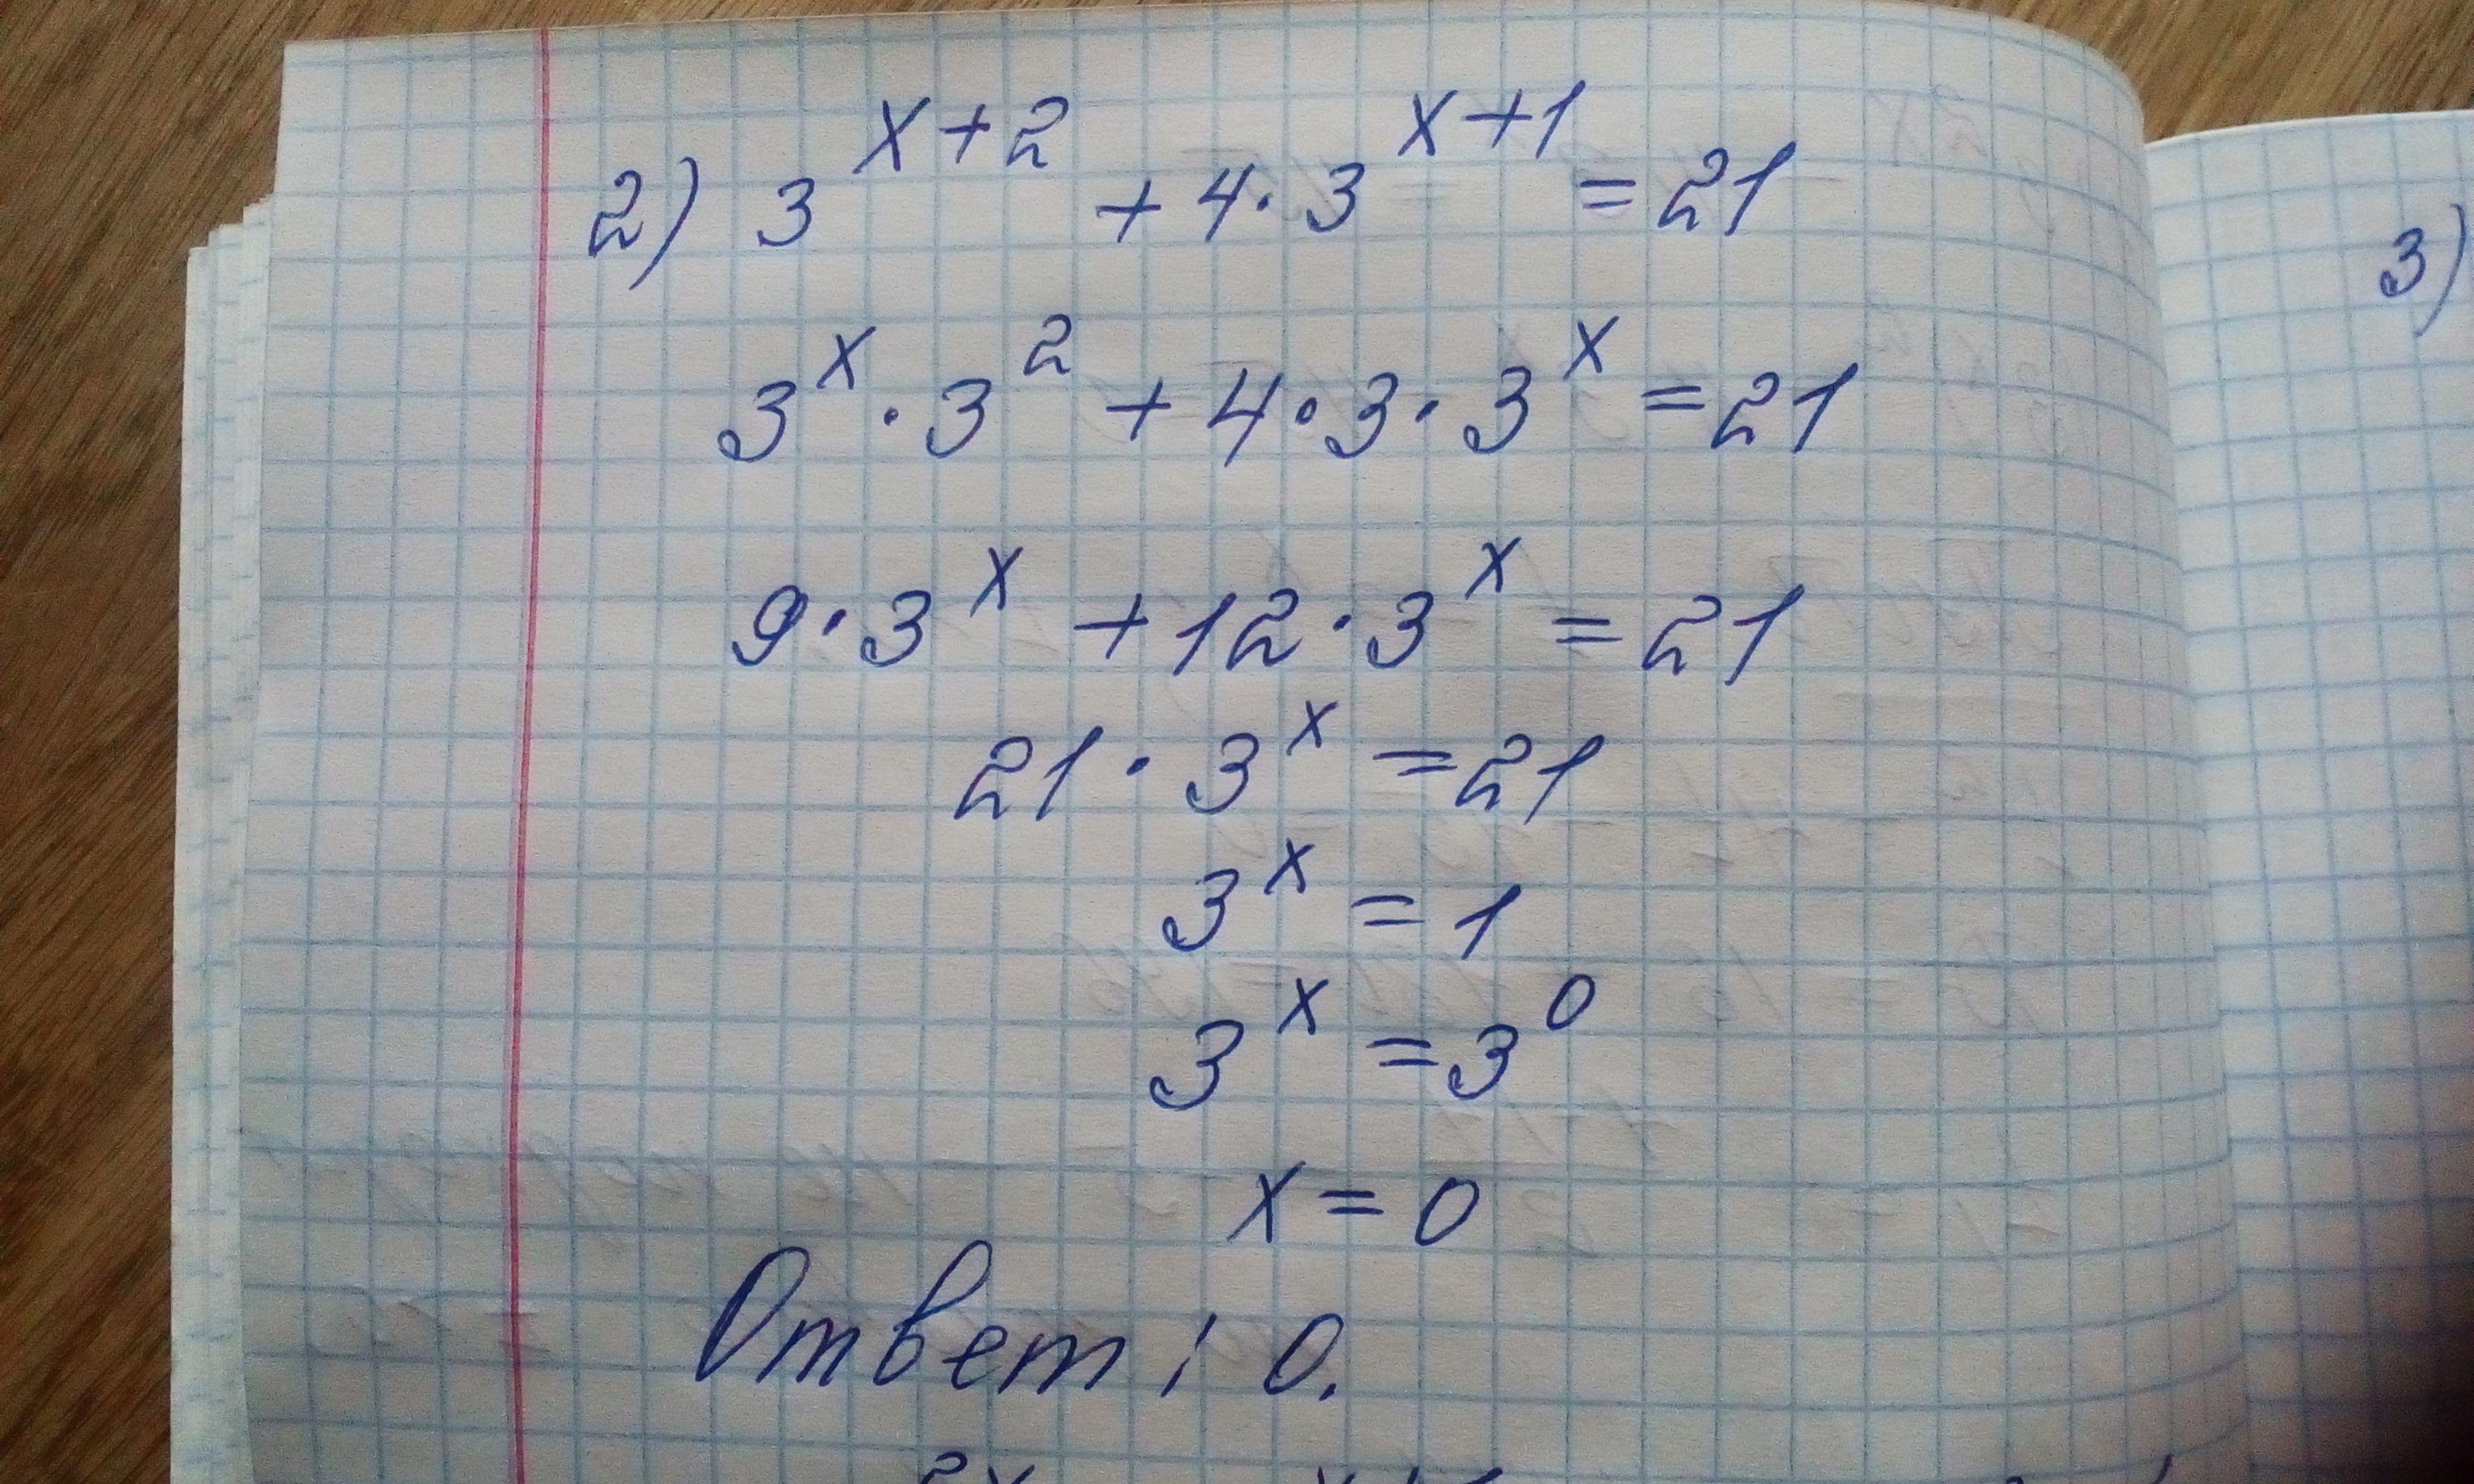 2) 3^{x+2} + 4·3^{x+1} = 21
3^x · 3^2 + 4·3·3^x = 21
9·3^x + 12·3^x = 21
21·3^x = 21
3^x = 1
3^x = 3^0
x = 0
Ответ: 0.
3)